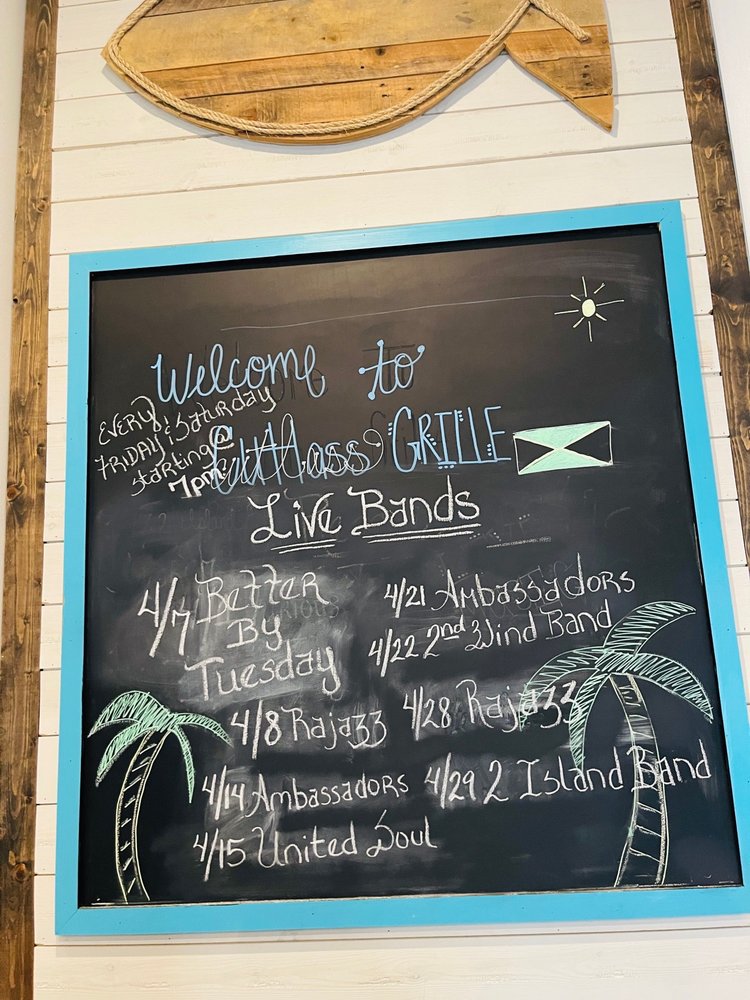 Welcome to
Cutlass GRILLE
EVERY
FRIDAY & SATURDAY
starting @
7pm
Live Bands
4/7 Better
By
Tuesday
4/8 Rajazz
4/14 Ambassadors
4/15 United Soul
4/21 Ambassadors
4/22 2nd Wind Band
4/28 Rajazz
4/29 2 Island Band